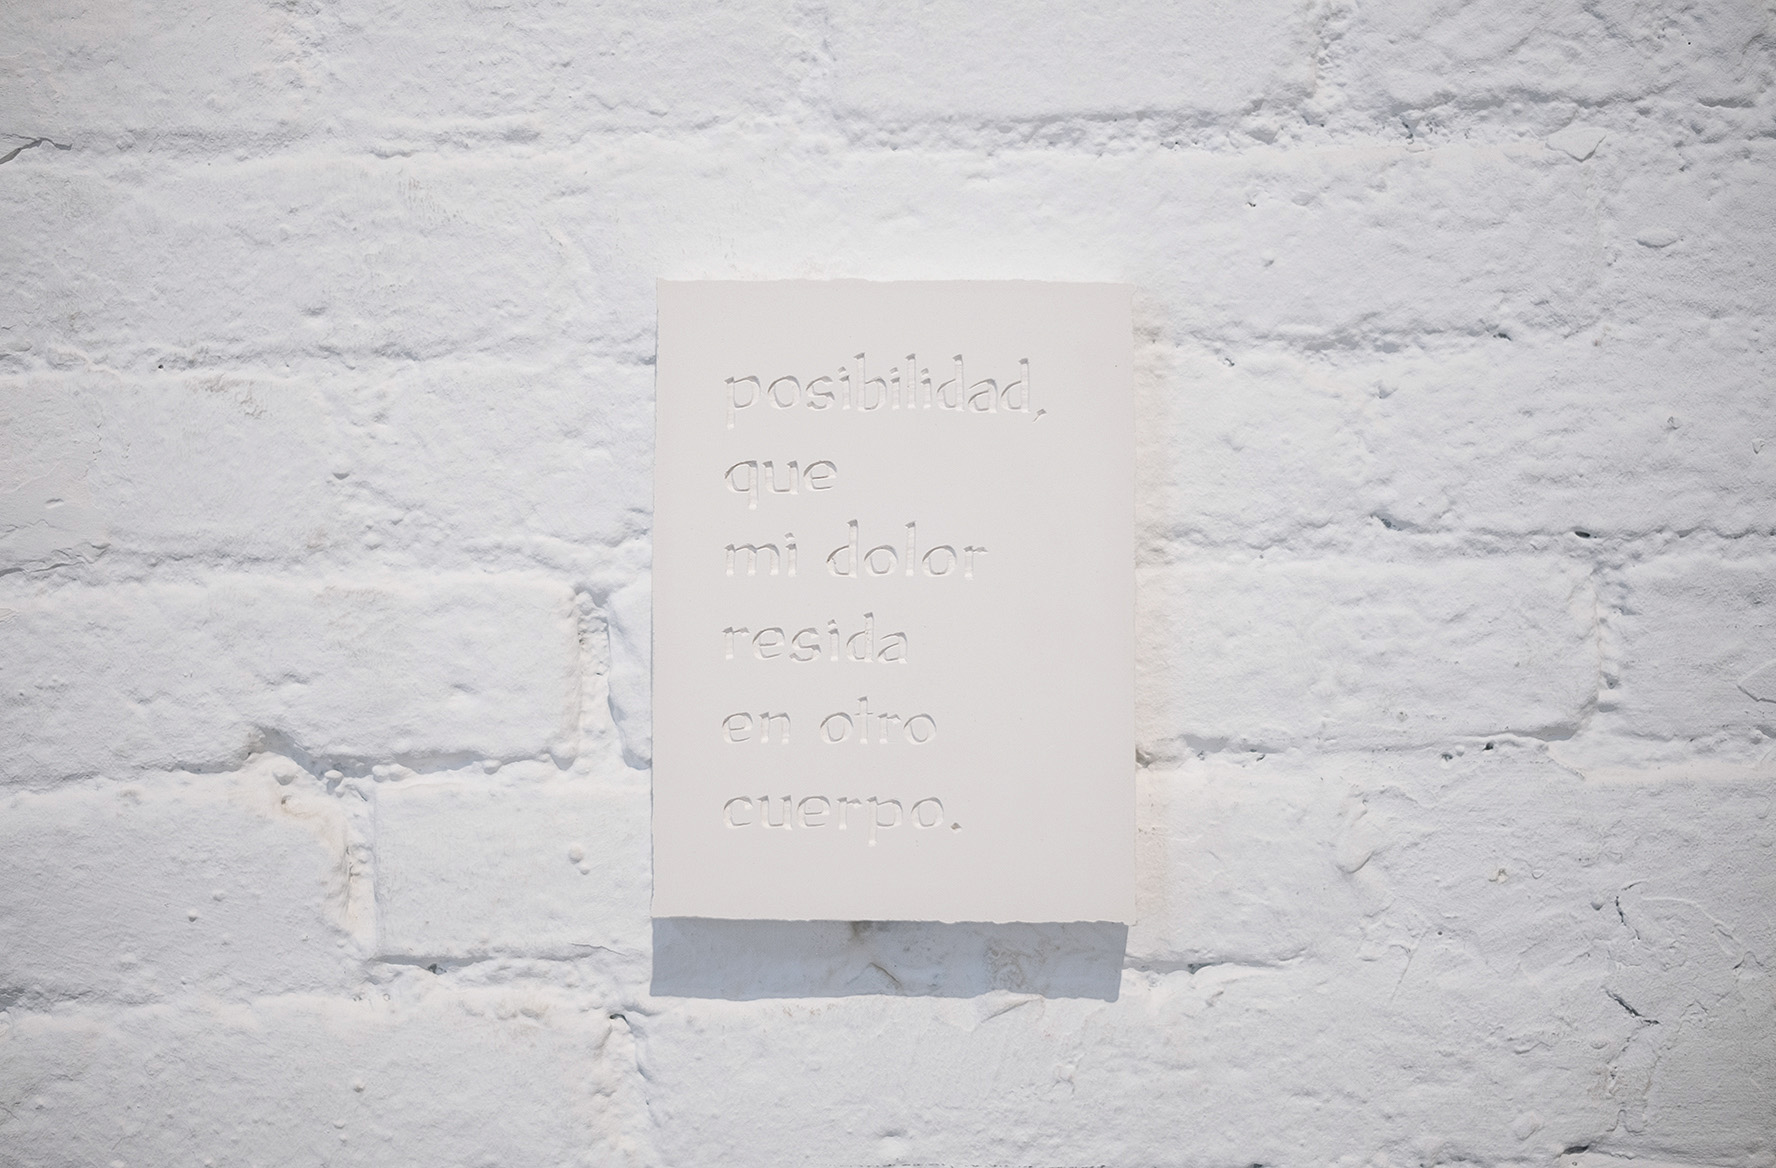 posibilidad,
que
mi dolor
resida
en otro
cuerpo.